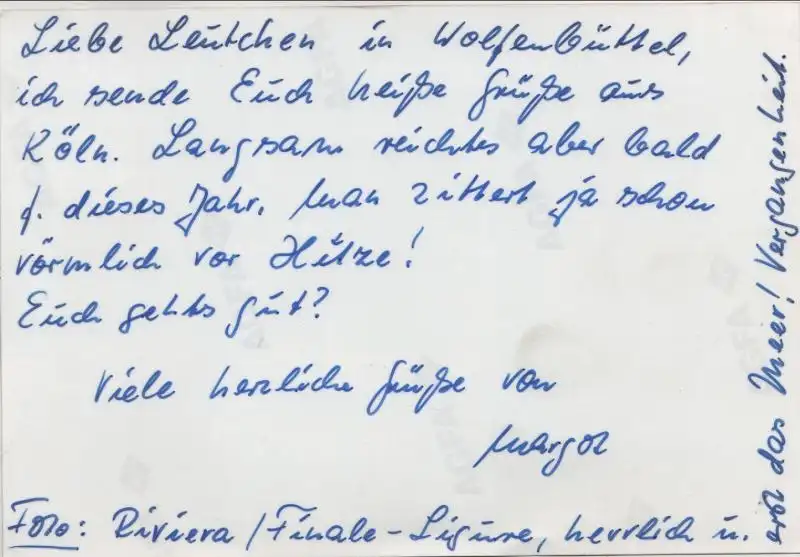 Liebe Leutchen in Wolfenbüttel,
ich sende Euch heiße Grüße aus
Köln. Langsam reichts aber bald
f. dieses Jahr. Man zittert ja schon
vörmlich vor Hitze!
Euch gehts gut?
Viele herzliche Grüße von
Margot
Foto: Riviera / Finale-Ligure, herrlich u.
erst das Meer! Vergangenheit.